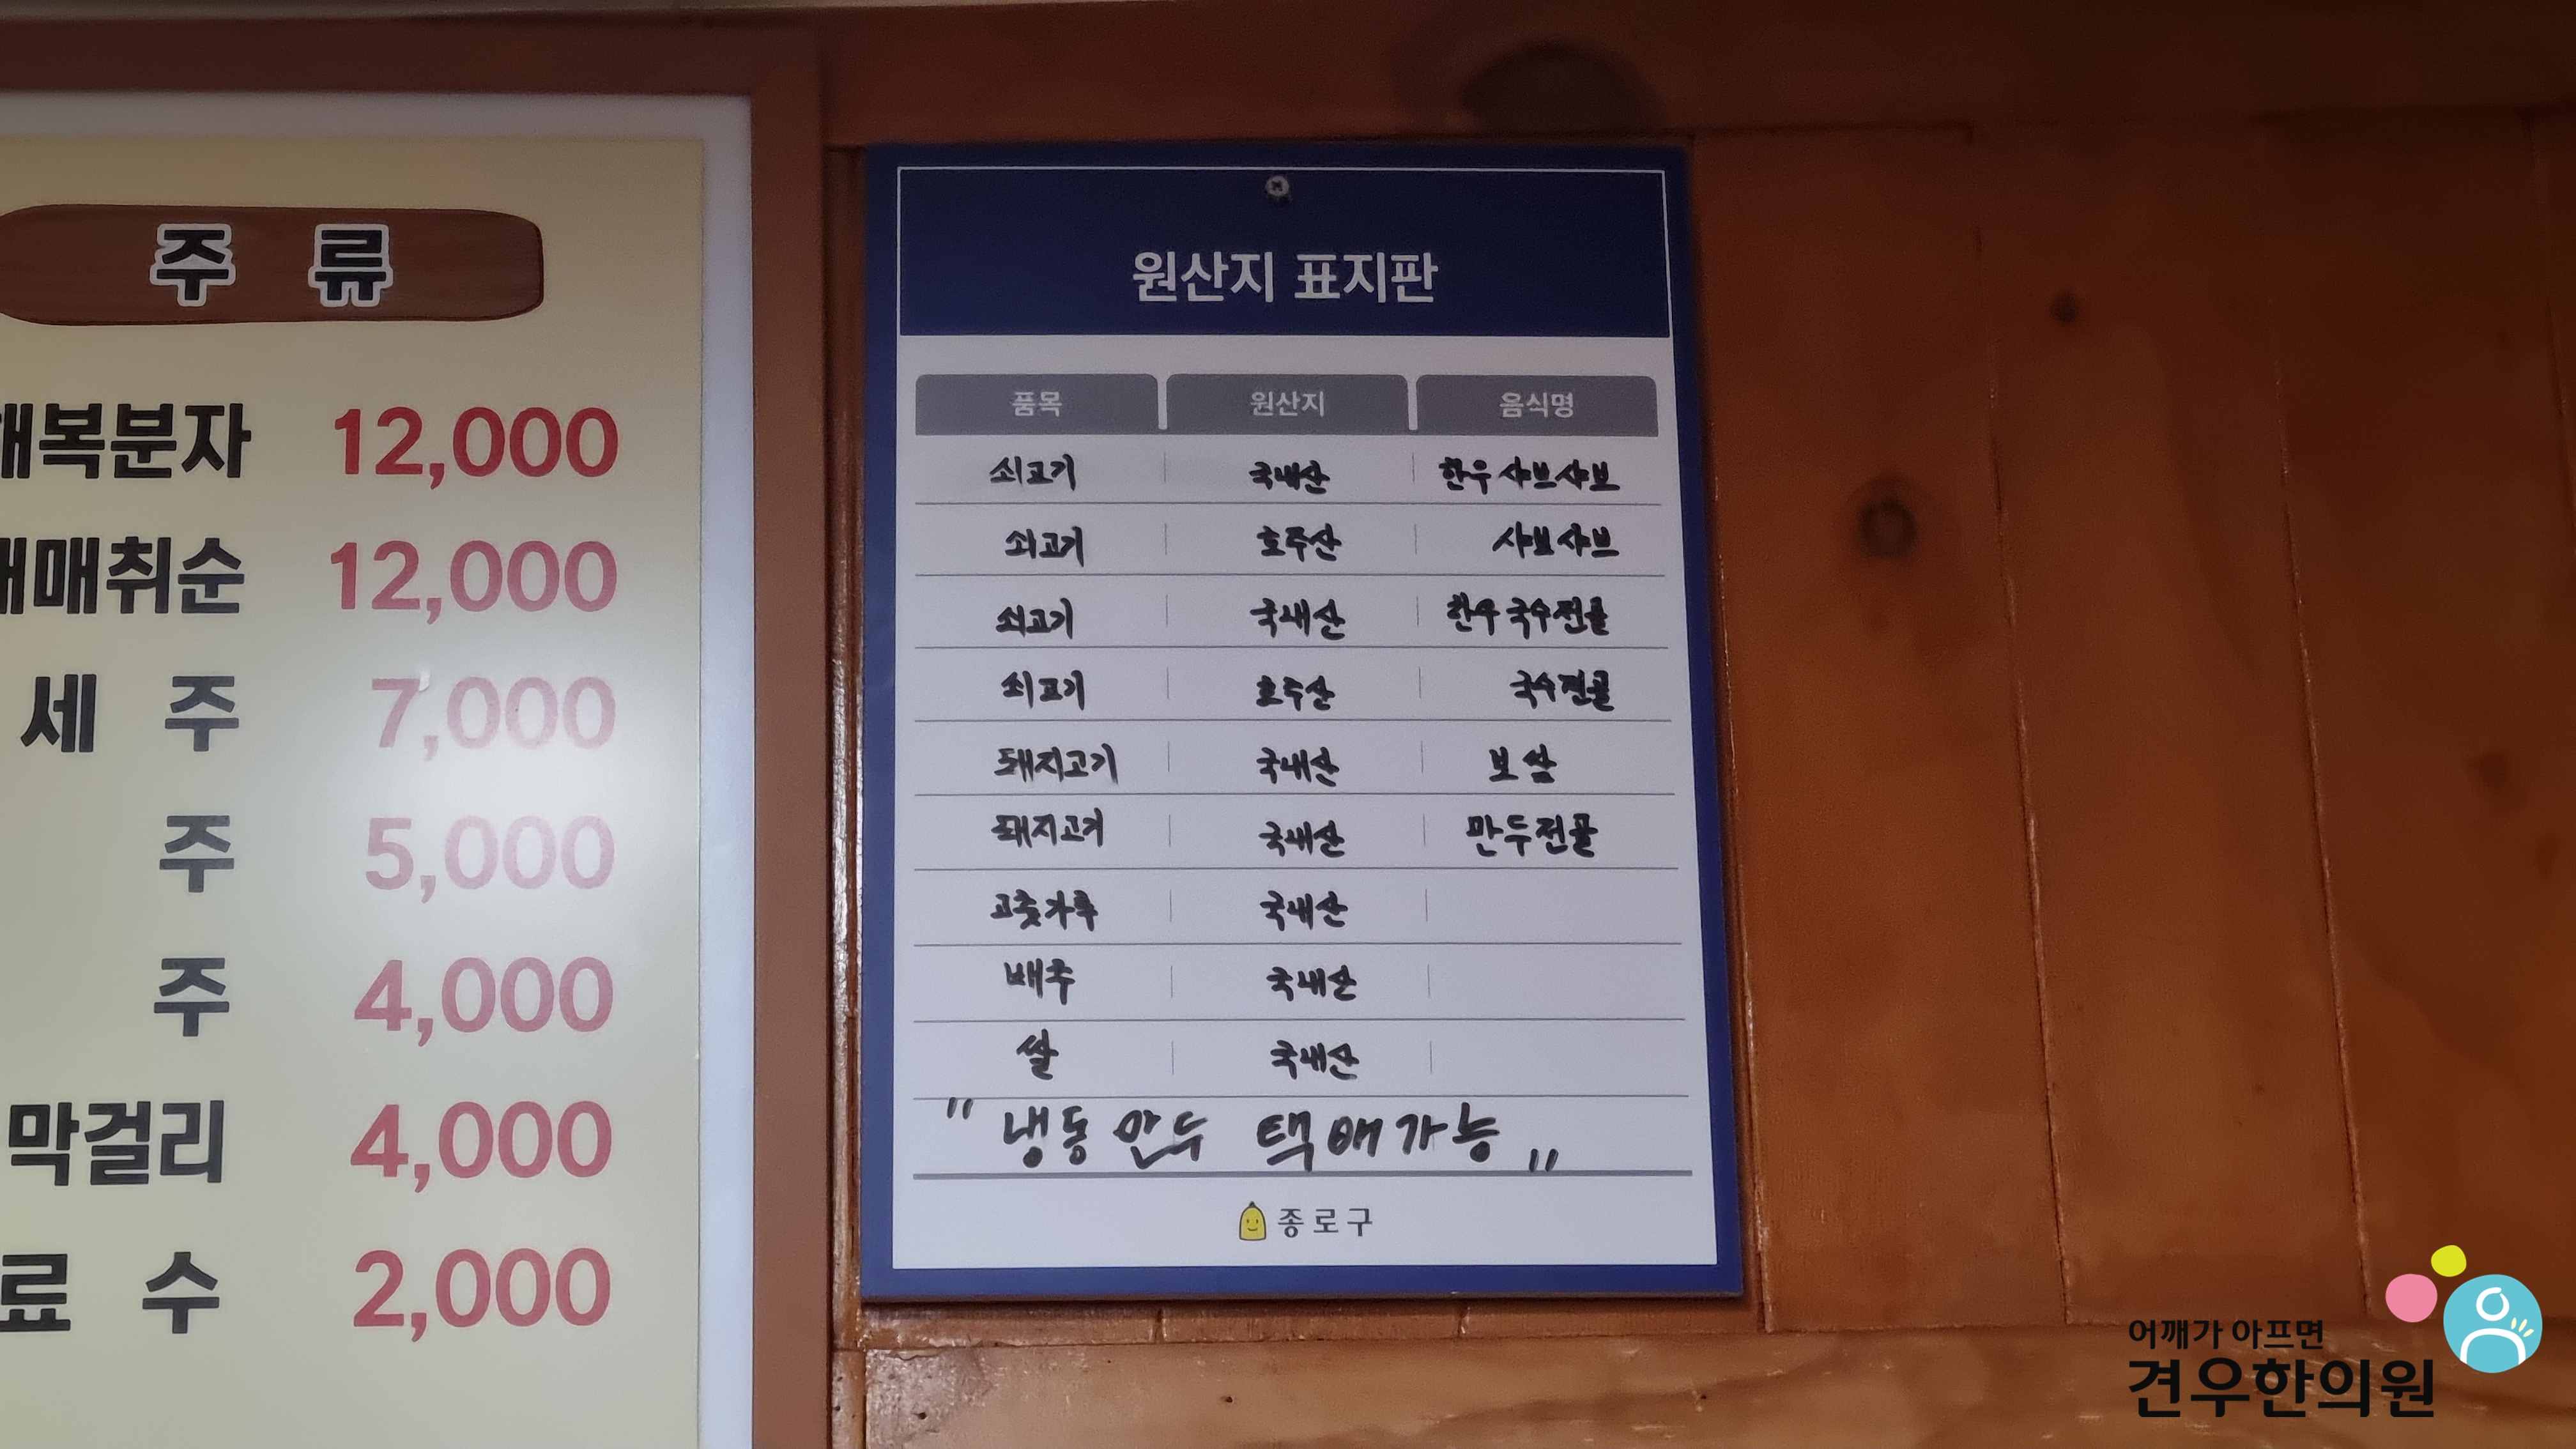 주 류
복분자 12,000
매취순 12,000
세 주 7,000
주 5,000
주 4,000
막걸리 4,000
료 수 2,000
원산지 표지판
품목 원산지 음식명
쇠고기 국내산 한우 샤브샤브
쇠고기 호주산 샤브샤브
쇠고기 국내산 한우 국수전골
쇠고기 호주산 국수전골
돼지고기 국내산 보쌈
돼지고기 국내산 만두전골
고춧가루 국내산
배추 국내산
쌀 국내산
"냉동만두 택배가능"
종로구
어깨가 아프면
견우한의원